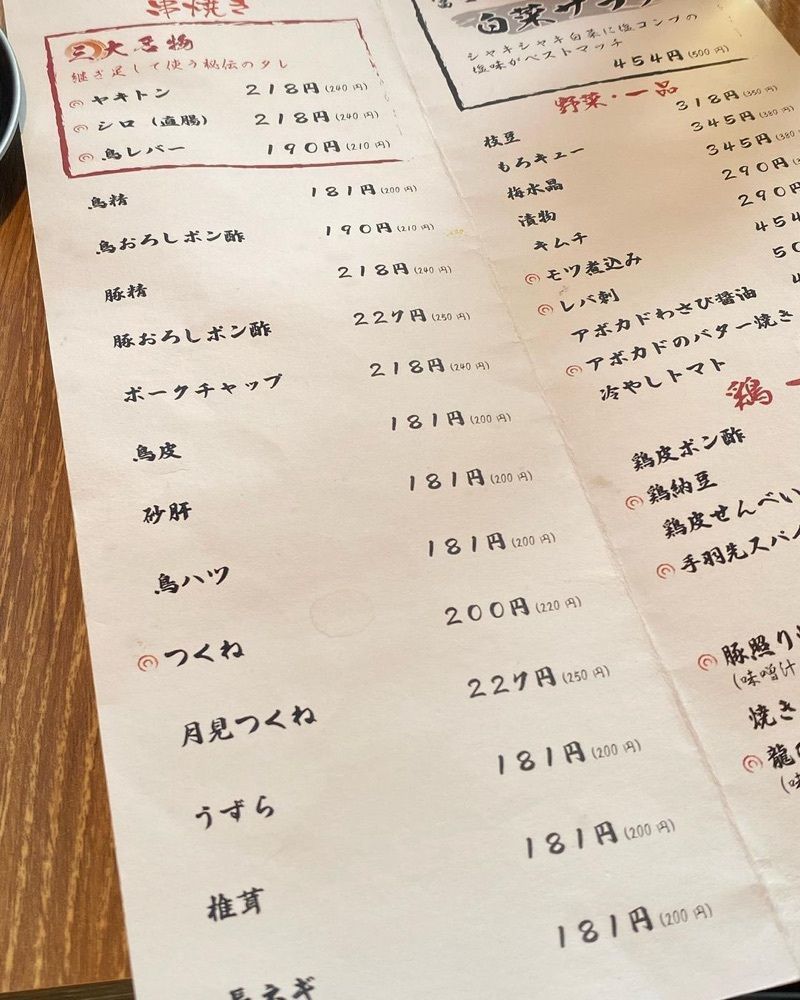 串焼き
三大名物
継ぎ足して使う秘伝のタレ
ヤキトン 218円(240円)
シロ(直腸) 218円(240円)
鳥レバー 190円(210円)
鳥精 181円(200円)
鳥おろしポン酢 190円(210円)
豚精 218円(240円)
豚おろしポン酢 227円(250円)
ポークチャップ 218円(240円)
鳥皮 181円(200円)
砂肝 181円(200円)
鳥ハツ 181円(200円)
つくね 200円(220円)
月見つくね 227円(250円)
うずら 181円(200円)
椎茸 181円(200円)
長ネギ 181円(200円)
白菜サラダ
シャキシャキ白菜に塩コンブの
塩味がベストマッチ
454円(500円)
野菜・一品
枝豆 318円(350円)
もろキュー 345円(380円)
梅水晶 345円(380
漬物 290円
キムチ 290円
モツ煮込み 454
レバ刺
アボカドわさび醤油
アボカドのバター焼き
冷やしトマト
鶏
鶏皮ポン酢
鶏納豆
鶏皮せんべい
手羽先スパイ
豚照り
(味噌汁
焼き
龍